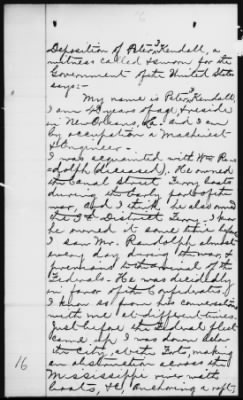 Deposition of Peter Kendall, a
witness called & sworn for the
Government of the United States
says:-
My name is Peter Kendall,
I am 42 years of age, & reside
in New Orleans, La. and I am
by occupation a Machinist
& Engineer.-
I was acquainted with Wm Ran-
dolph (deceased). He owned
the Canal Street Ferry boats
during the early part of the
war, and I think he also owned
the 3d District Ferry. I know
he owned it some time before.
I saw Mr. Randolph almost
every day during the war, &
previous to the arrival of the
Federals. He was decidedly
in favor of the Confederacy.
I knew so from his conversation
with me at different times.
Just before the Federal fleet
came up I was down below
the City, at the Forts, making
an obstruction across the
Mississippi river with
boats, &c, anchoring a raft,
16